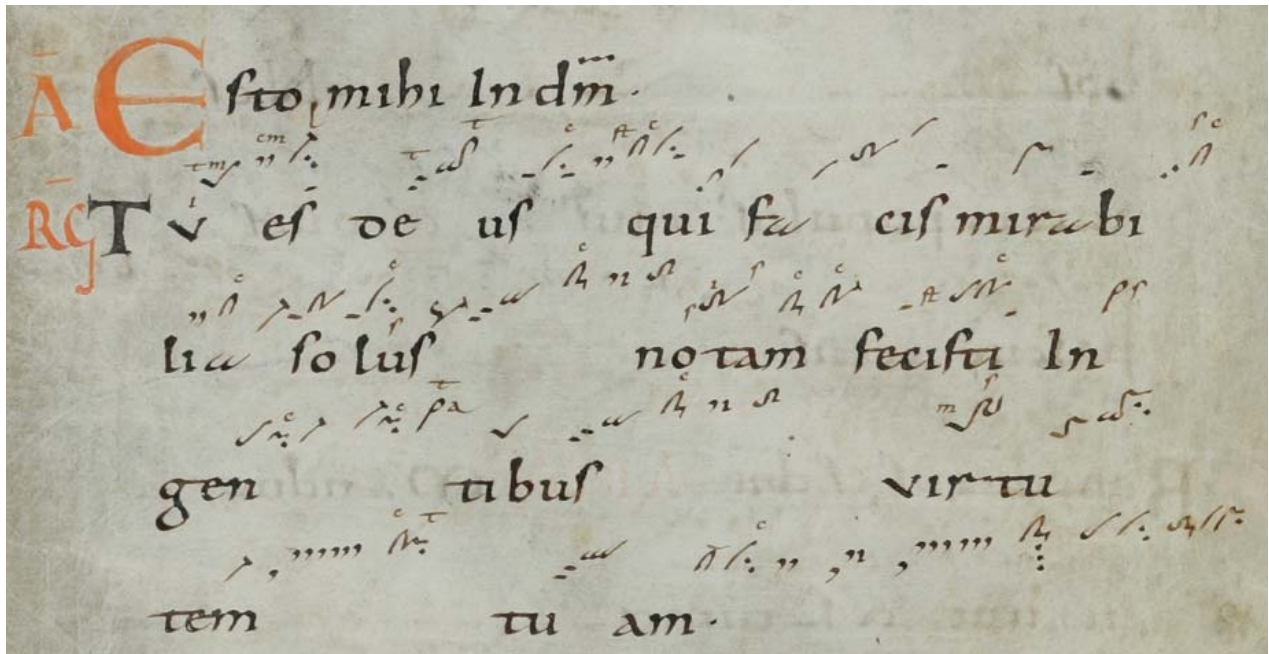 Ā Esto mihi In dm̄·
RG Tu es de us qui fa cis mira bi
lia so lus no tam fecisti In
gen tibus virtu
tem tu am·